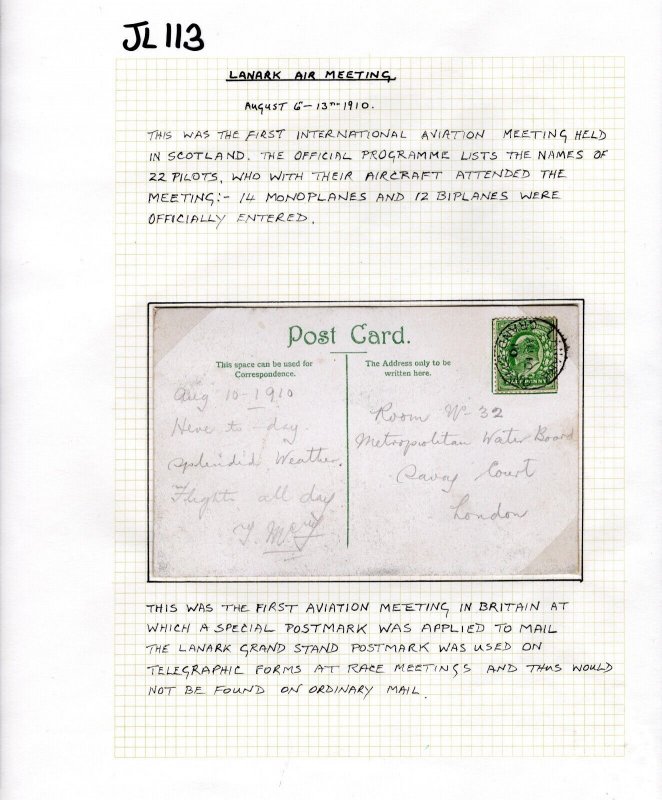 JL 113
LANARK AIR MEETING
AUGUST 6 - 13TH 1910.
THIS WAS THE FIRST INTERNATIONAL AVIATION MEETING HELD
IN SCOTLAND. THE OFFICIAL PROGRAMME LISTS THE NAMES OF
22 PILOTS, WHO WITH THEIR AIRCRAFT ATTENDED THE
MEETING:- 14 MONOPLANES AND 12 BIPLANES WERE
OFFICIALLY ENTERED.
Post Card.
This space can be used for
Correspondence.
The Address only to be
written here.
HALF PENNY
Aug 10-1910
Here to-day
splendid Weather.
Flights all day
Room No 32
Metropolitan Water Board
Savoy Court
London
THIS WAS THE FIRST AVIATION MEETING IN BRITAIN AT
WHICH A SPECIAL POSTMARK WAS APPLIED TO MAIL
THE LANARK GRAND STAND POSTMARK WAS USED ON
TELEGRAPHIC FORMS AT RACE MEETINGS AND THUS WOULD
NOT BE FOUND ON ORDINARY MAIL.